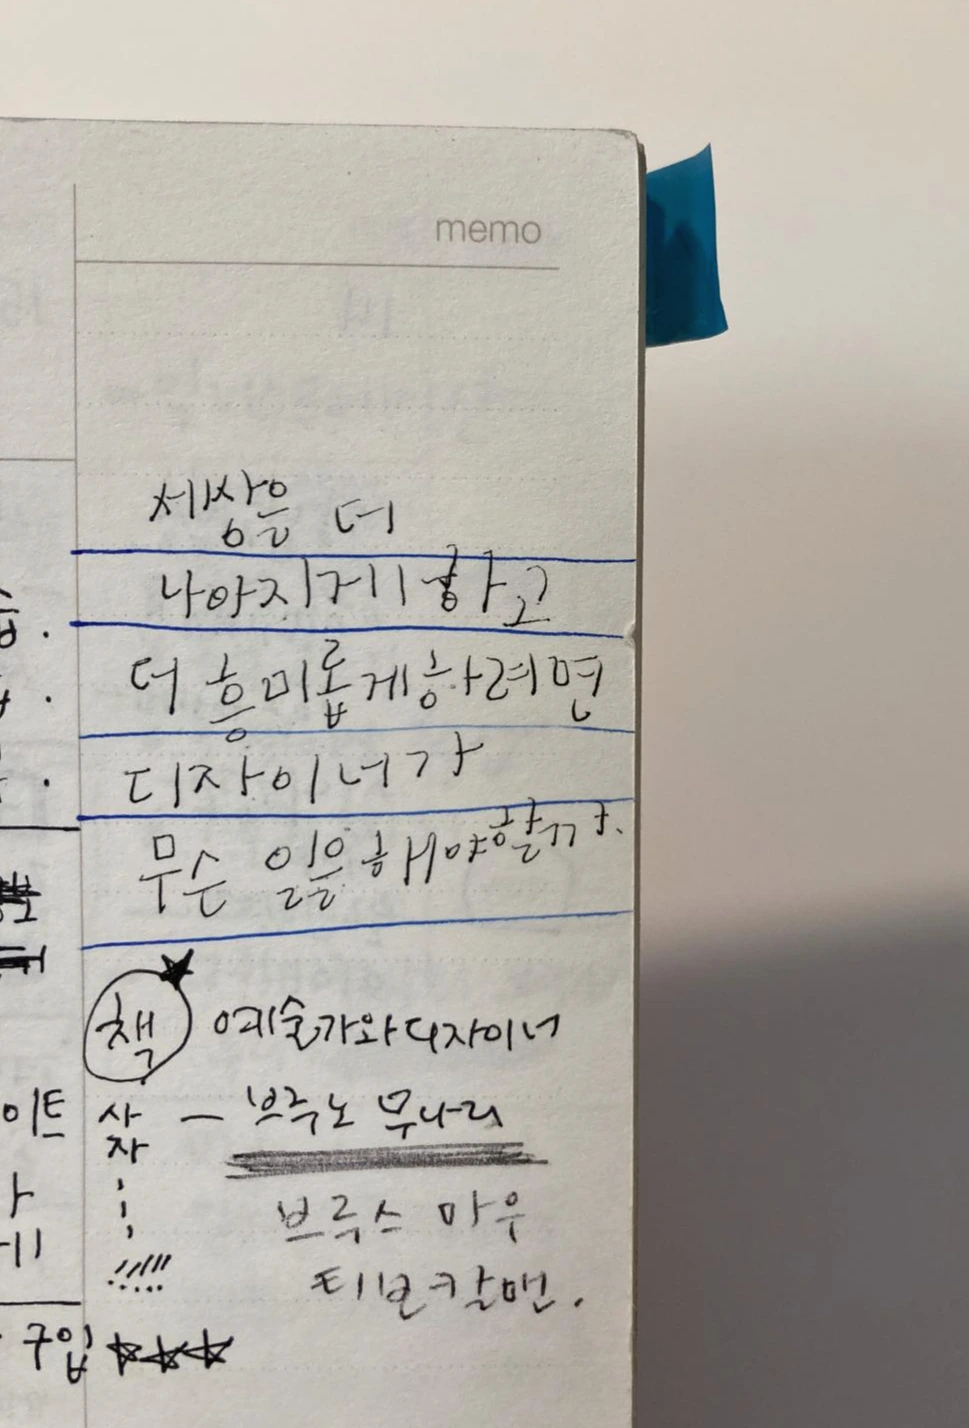 memo
세상을 더
나아지게 하고
더 흥미롭게하려면
디자이너가
무슨 일을 해야할까.
책 예술가와디자이너
사자 — 브루노 무나리
브루스 마우
티보 칼맨.
이트
구입